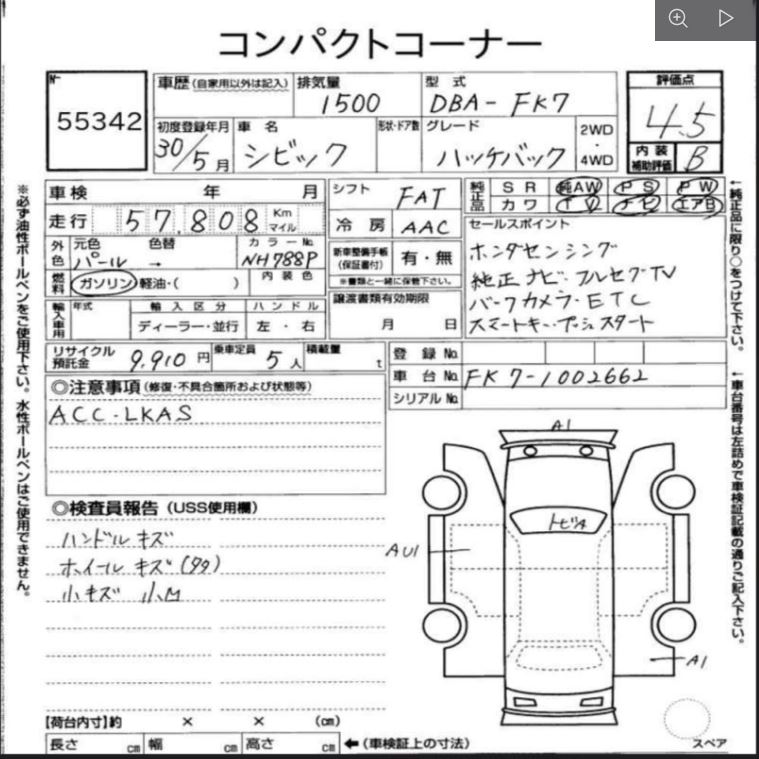 コンパクトコーナー
No 55342
車歴(自家用以外は記入)
排気量 1500
型式 DBA-FK7
評価点 4.5
初度登録年月 30/5月
車名 シビック
形状・ドア数
グレード ハッチバック
2WD・4WD
内装補助評価 B
車検 年 月
シフト FAT
純正品 SR 純AW PS PW
カワ TV ナビ エアB
走行 57,808 Km マイル
冷房 AAC
セールスポイント
ホンダセンシング
純正ナビ.フルセグTV
バックカメラ・ETC
スマートキー.プッシュスタート
外色 元色 パール 色替 → カラーNo. NH788P
新車整備手帳(保証書付) 有・無
※書類と一緒に保管下さい。
燃料 ガソリン 軽油・( ) 内装色
譲渡書類有効期限
月 日
輸入車用 年式 輸入区分 ハンドル
ディーラー・並行 左・右
リサイクル預託金 9,910円 乗車定員 5人 積載量 t
登録No.
車台No. FK7-1002662
シリアルNo.
◎注意事項(修復・不具合箇所および状態等)
ACC.LKAS
◎検査員報告(USS使用欄)
ハンドルキズ
ホイールキズ(タタ)
小キズ 小M
A1
トビA
AU1
A1
スペア
【荷台内寸】約 × × (cm)
長さ cm 幅 cm 高さ cm ←(車検証上の寸法)
※必ず油性ボールペンをご使用下さい。水性ボールペンはご使用できません。
←純正品に限り○をつけて下さい。
←車台番号は左詰めで車検証記載の通りご記入下さい。